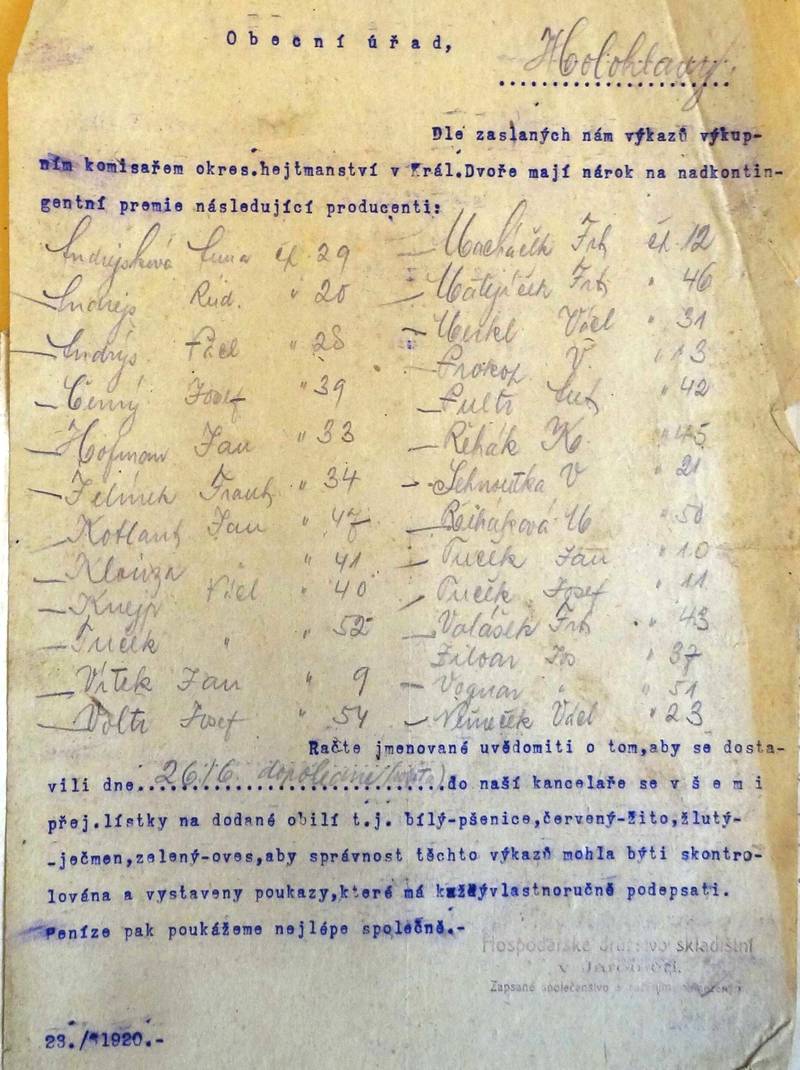 Obecní úřad,
Holohlavy.
Dle zaslaných nám výkazů výkup-
ním komisařem okres.hejtmanství v Král.Dvoře mají nárok na nadkontin-
gentní premie následující producenti:
Andrejsková Anna čp. 29
Andrejs Rud. " 20
Andrýs Václ " 28
Černý Josef " 39
Hofman Jan " 33
Jelínek Frant " 34
Kotland Jan " 47
Klouza " 41
Knejp Václ " 40
Tuček " " 52
Vítek Jan " 9
Voltr Josef " 54
Macháček Frt čp. 12
Matějíček Frt " 46
Merkl Václ " 31
Prokop V. " 13
Pultr Ant " 42
Řehák K. " 45
Sehnoutka V " 21
Řeháková M " 50
Tuček Jan " 10
Tuček Josef " 11
Valášek Frt " 43
Žilvar Jos " 37
Vognar " " 51
Němeček Václ " 23
Račte jmenované uvědomiti o tom,aby se dosta-
vili dne 26/6. dopoledne do naší kanceláře se v š e m i
přej.lístky na dodané obilí t.j. bílý-pšenice,červený-žito,žlutý-
-ječmen,zelený-oves,aby správnost těchto výkazů mohla býti skontro-
lována a vystaveny poukazy,které má každývlastnoručně podepsati.
Peníze pak poukážeme nejlépe společně.-
Hospodářské družstvo skladištní
v Jaroměři.
Zapsané společenstvo s
23./ 1920.-